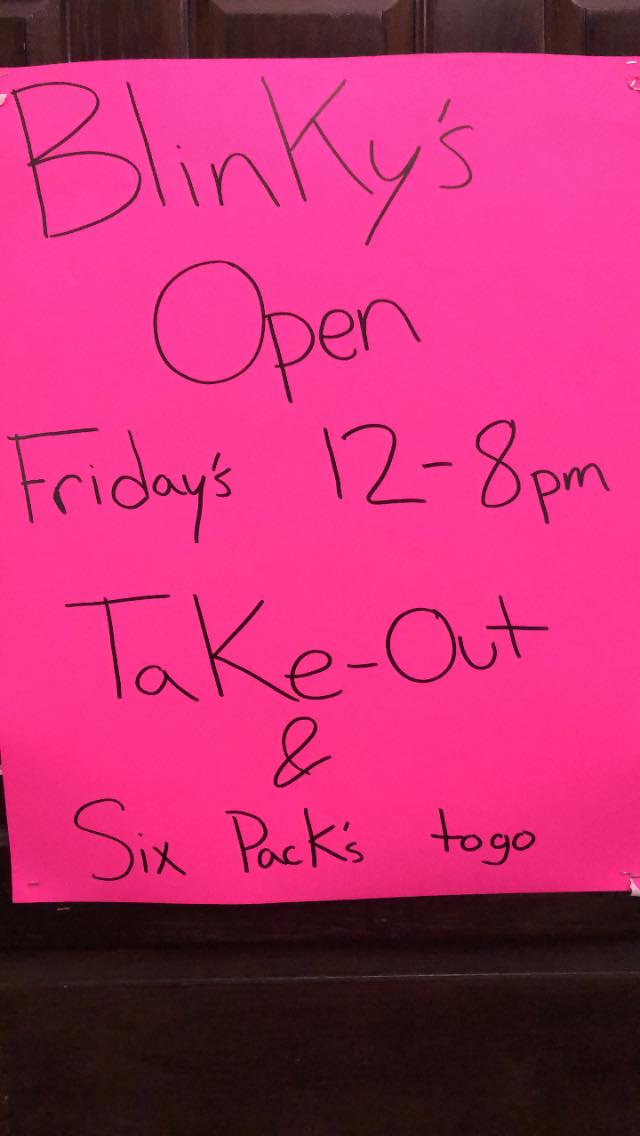 Blinky's
Open
Friday's 12-8pm
Take-Out
&
Six Pack's togo